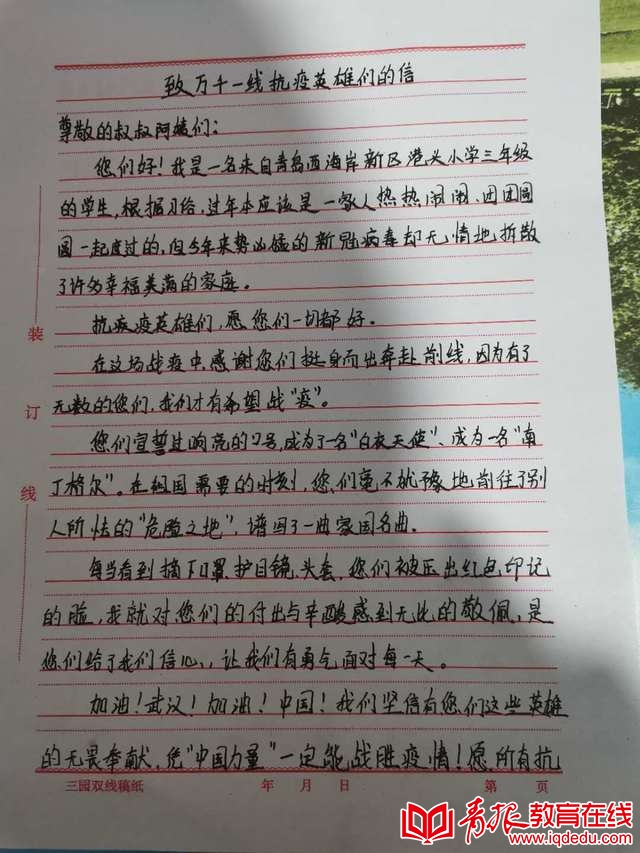 致万千一线抗疫英雄们的信
尊敬的叔叔阿姨们：
您们好！我是一名来自青岛西海岸新区港头小学三年级
的学生，根据习俗，过年本应该是一家人热热闹闹、团团圆
圆一起度过的，但今年来势凶猛的新冠病毒却无情地拆散
了许多幸福美满的家庭。
抗疾疫英雄们，愿您们一切都好。
在这场战疫中，感谢您们挺身而出奔赴前线，因为有了
无数的您们，我们才有希望战“疫”。
您们宣誓过响亮的口号，成为了一名“白衣天使”、成为一名“南
丁格尔”。在祖国需要的时刻，您们毫不犹豫地前往了别
人所怯的“危险之地”，谱写了一曲家国名曲。
每当看到摘下口罩、护目镜、头套，您们被压出红色印记
的脸，我就对您们的付出与辛酸感到无比的敬佩，是
您们给了我们信心，让我们有勇气面对每一天。
加油！武汉！加油！中国！我们坚信有您们这些英雄
的无畏奉献，凭“中国力量”一定能战胜疫情！愿所有抗
装
订
线
三园双线稿纸 年 月 日 第 页
青报教育在线
www.iqdedu.com